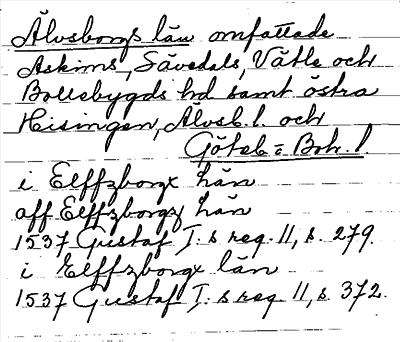 Älvsborgs län omfattade
Askims, Sävedals, Vätle och
Bollebygds hd samt östra
Hisingen, Älvsb. l. och
Göteb = Boh. l.
i Elffzborgx hän
aff Elffzborgz hän
1537 Gustaf I:s reg. 11, s. 279.
i Elffzborgx län
1537 Gustaf I:s reg. 11, s. 372.